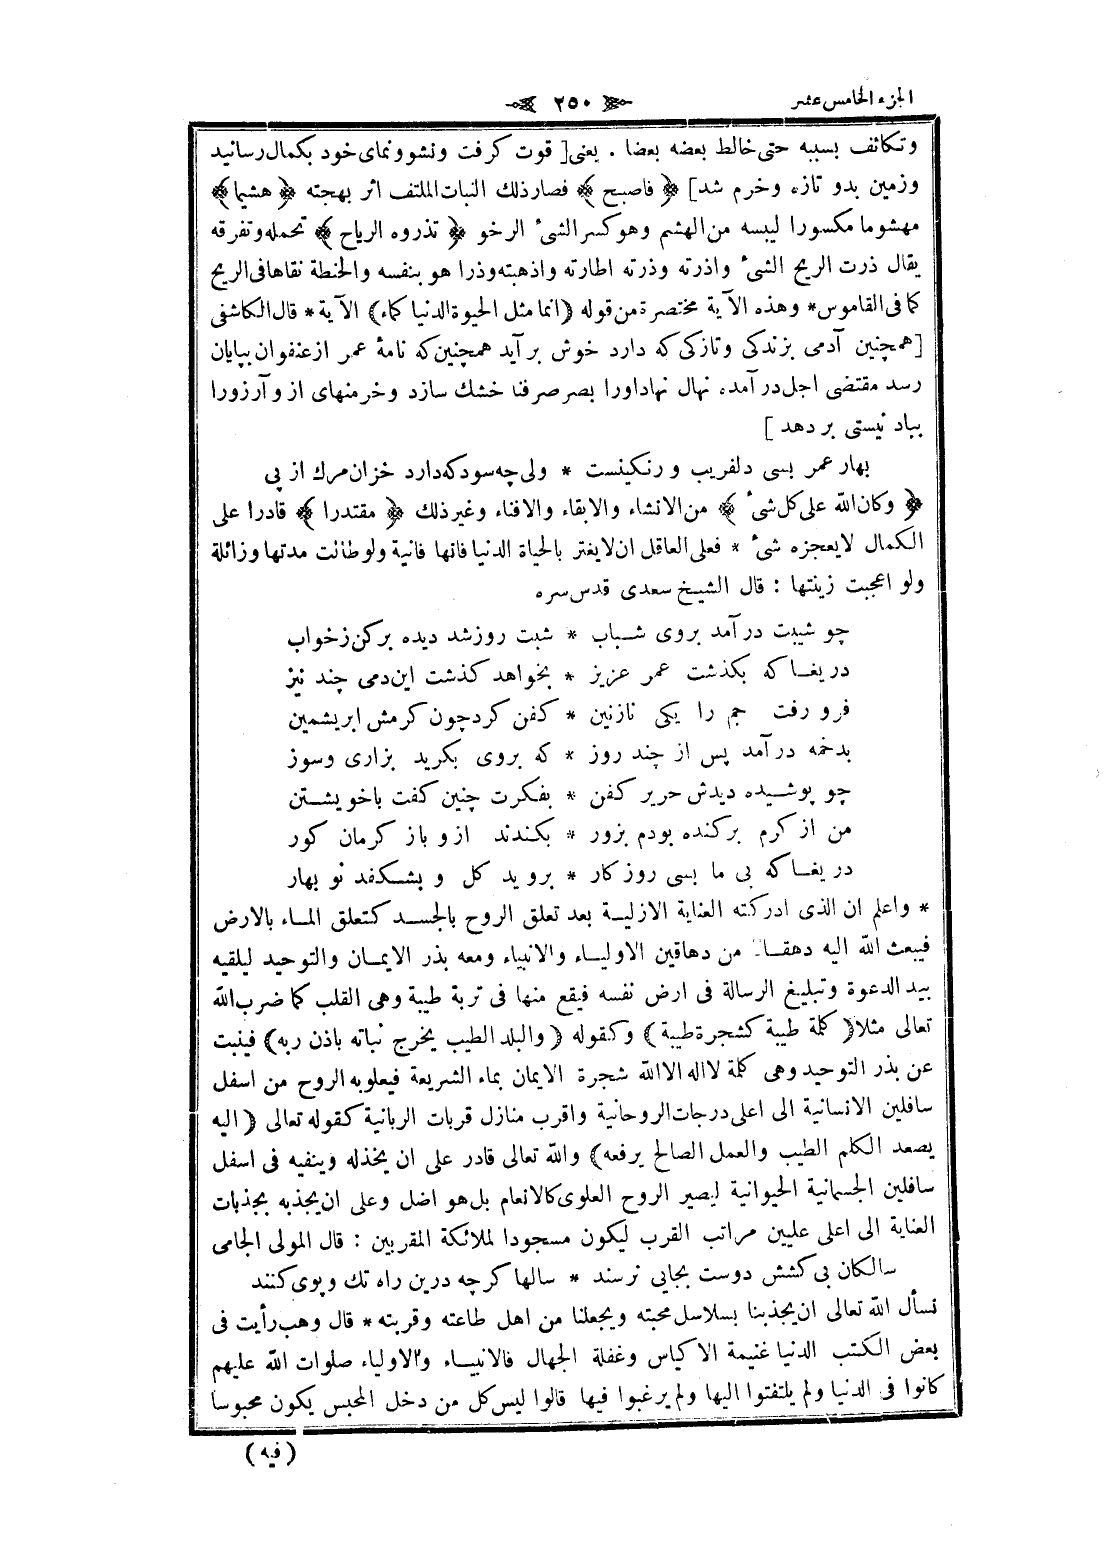 الجزء الخامس عشر
٢٥٠
وتكاثف بسببه حتى خالط بعضه بعضا . يعنى [ قوت كرفت ونشوونماى خود بكمال رسانيد
وزمين بدو تازه وخرم شد ] ﴿ فاصبح ﴾ فصار ذلك النبات الملتف اثر بهجته ﴿ هشيما ﴾
مهشوما مكسورا ليبسه من الهشم وهو كسر الشىء الرخو ﴿ تذروه الرياح ﴾ تحمله وتفرقه
يقال ذرت الريح الشىء واذرته وذرته اطارته واذهبته وذرا هو بنفسه والحنطة نقاها فى الريح
كما فى القاموس * وهذه الآية مختصرة من قوله ( انما مثل الحيوة الدنيا كماء ) الآية * قال الكاشفى
[ همچنين آدمى بزندكى وتازكى كه دارد خوش بر آيد همچنين كه نامۀ عمر از عنفوان بپايان
رسد مقتضى اجل در آمده نهال نهاد اورا بصرصر فنا خشك سازد وخرمنهاى از و آرزورا
بباد نيستى بر دهد ]
بهار عمر بسى دلفريب ورنكينست * ولى چه سود كه دارد خزان مرك از پى
﴿ وكان الله على كل شىء ﴾ من الانشاء والابقاء والافناء وغير ذلك ﴿ مقتدرا ﴾ قادرا على
الكمال لا يعجزه شىء * فعلى العاقل ان لا يغتر بالحياة الدنيا فانها فانية ولو طالت مدتها وزائلة
ولو اعجبت زينتها : قال الشيخ سعدى قدس سره
چو شيبت در آمد بروى شباب * شبت روز شد ديده بركن زخواب
دريغا كه بكذشت عمر عزيز * بخواهد كذشت اين دمى چند نيز
فرو رفت جم را يكى نازنين * كفن كرد چون كرمش ابريشمين
بدخمه در آمد پس از چند روز * كه بروى بكريد بزارى وسوز
چو پوشيده ديدش حرير كفن * بفكرت چنين كفت باخويشتن
من از كرم بركنده بودم بزور * بكندند ازو باز كرمان كور
دريغا كه بى ما بسى روز كار * برويد كل و بشكفد نو بهار
* واعلم ان الذى ادركته العناية الازلية بعد تعلق الروح بالجسد كتعلق الماء بالارض
فيبعث الله اليه دهقانا من دهاقين الاولياء والانبياء ومعه بذر الايمان والتوحيد ليلقيه
بيد الدعوة وتبليغ الرسالة فى ارض نفسه فيقع منها فى تربة طيبة وهى القلب كما ضرب الله
تعالى مثلا ( كلمة طيبة كشجرة طيبة ) وكقوله ( والبلد الطيب يخرج نباته باذن ربه ) فينبت
عن بذر التوحيد وهى كلمة لا اله الا الله شجرة الايمان بماء الشريعة فيعلو به الروح من اسفل
سافلين الانسانية الى اعلى درجات الروحانية واقرب منازل قربات الربانية كقوله تعالى ( اليه
يصعد الكلم الطيب والعمل الصالح يرفعه ) والله تعالى قادر على ان يخذله وينفيه فى اسفل
سافلين الجسمانية الحيوانية ليصير الروح العلوى كالانعام بل هو اضل وعلى ان يجذبه بجذبات
العناية الى اعلى عليين مراتب القرب ليكون مسجودا لملائكة المقربين : قال المولى الجامى
سالكان بى كشش دوست بجايى نرسند * سالها كرچه درين راه تك وپوى كنند
نسأل الله تعالى ان يجذبنا بسلاسل محبته ويجعلنا من اهل طاعته وقربته * قال وهب رأيت فى
بعض الكتب الدنيا غنيمة الاكياس وغفلة الجهال فالانبياء والاولياء صلوات الله عليهم
كانوا فى الدنيا ولم يلتفتوا اليها ولم يرغبوا فيها قالوا ليس كل من دخل المحبس يكون محبوسا
( فيه )